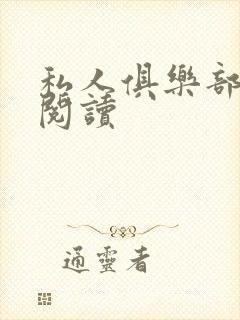 私人俱樂部
閱讀
通靈者